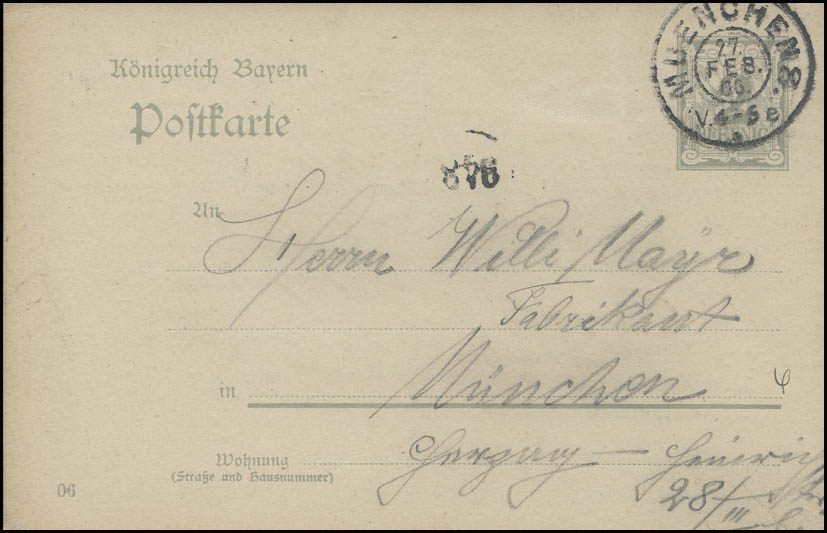 Königreich Bayern
Postkarte
MUENCHEN 8.
27.
FEB.
06.
V. 4-5 e
PFENNIG
An
Herrn Willi Mayr
Fabrikant
in München
Wohnung Herzog – Heinrich
(Straße und Hausnummer)
28/III
06